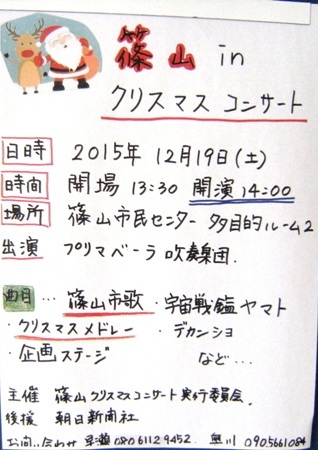 篠山 in
クリスマス コンサート
日時 2015年 12月19日(土)
時間 開場 13:30 開演 14:00
場所 篠山市民センター 多目的ルーム2
出演 プリマベーラ 吹奏楽団.
曲目 … 篠山市歌 ・宇宙戦艦ヤマト
・クリスマスメドレー ・デカンショ
・企画ステージ など…
主催 篠山クリスマスコンサート実行委員会.
後援 朝日新聞社
お問い合わせ 08061129452. 奥川 0905661084